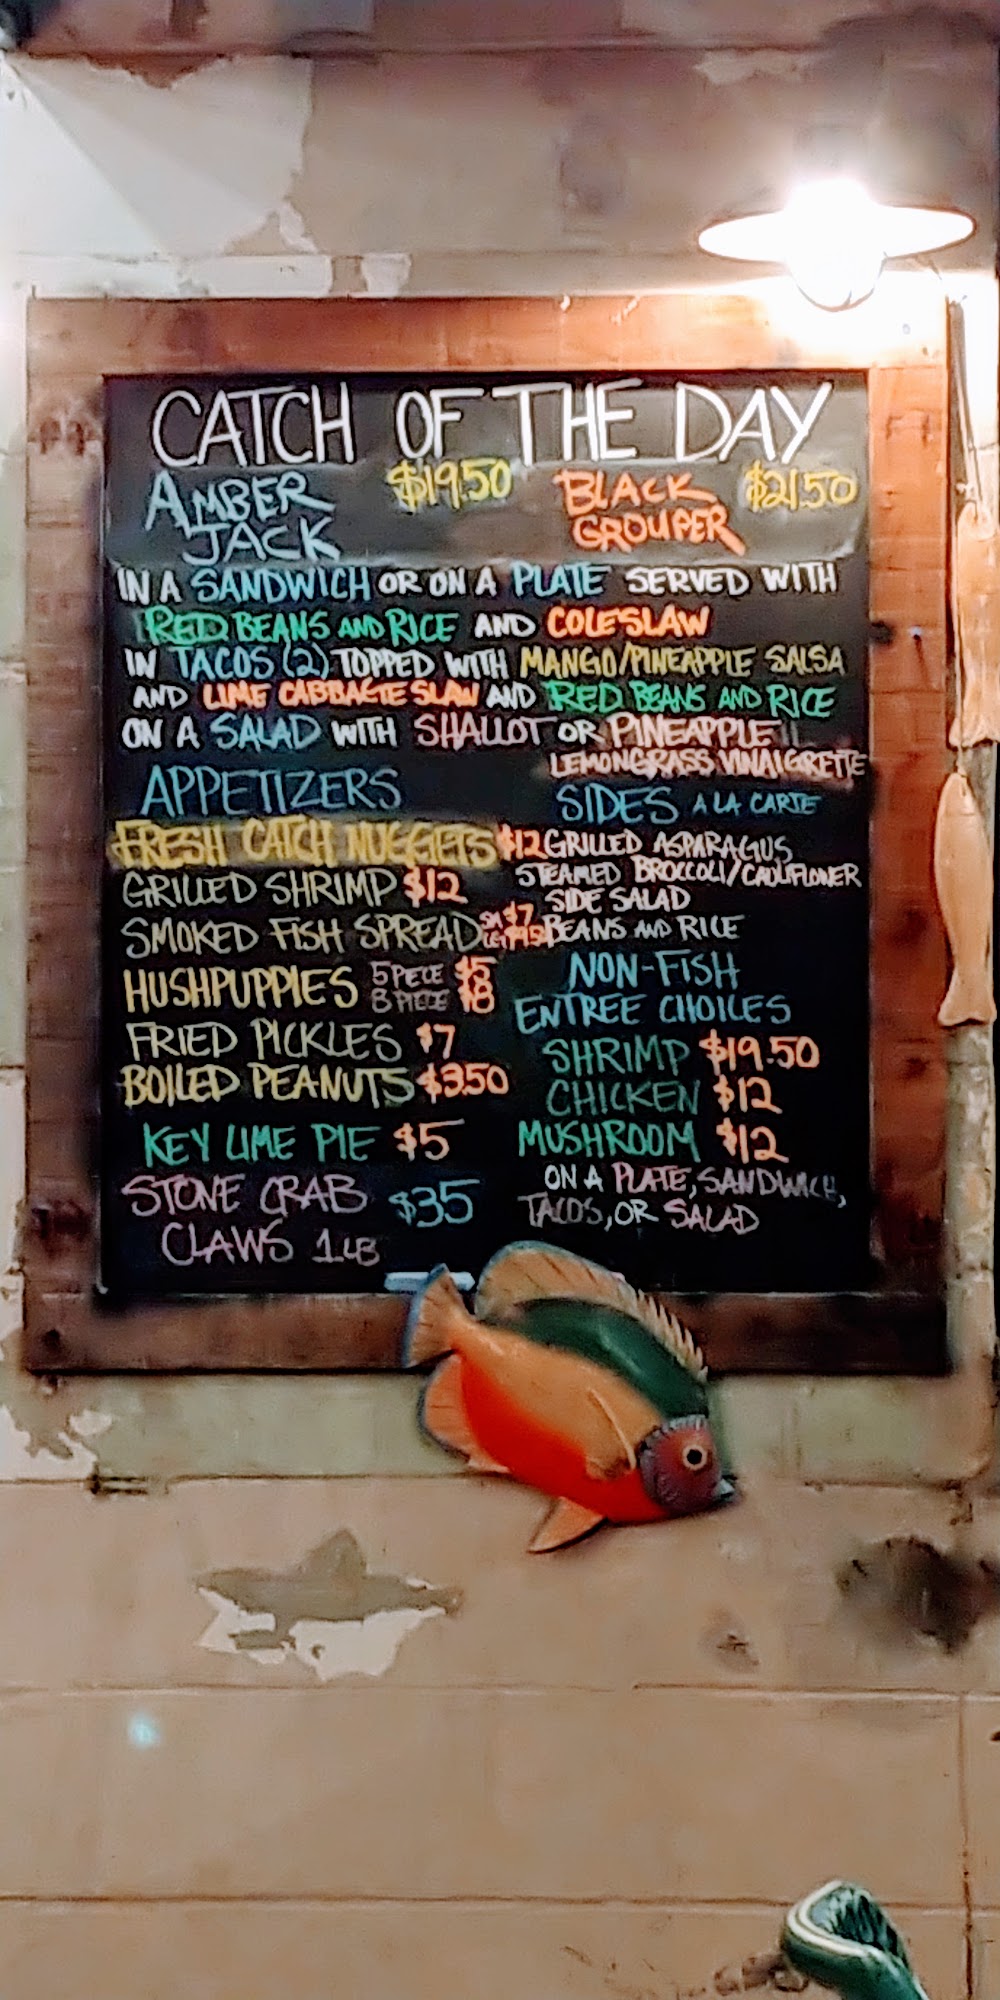 CATCH OF THE DAY
AMBER JACK $19.50
BLACK GROUPER $21.50
IN A SANDWICH OR ON A PLATE SERVED WITH
RED BEANS AND RICE AND COLESLAW
IN TACOS (2) TOPPED WITH MANGO/PINEAPPLE SALSA
AND LIME CABBAGE SLAW AND RED BEANS AND RICE
ON A SALAD WITH SHALLOT OR PINEAPPLE
LEMONGRASS VINAIGRETTE
APPETIZERS
FRESH CATCH NUGGETS $12
GRILLED SHRIMP $12
SMOKED FISH SPREAD SM $7
HUSHPUPPIES 5 PIECE $5
8 PIECE $8
FRIED PICKLES $7
BOILED PEANUTS $3.50
KEY LIME PIE $5
STONE CRAB $35
CLAWS 1LB
SIDES A LA CARTE
GRILLED ASPARAGUS
STEAMED BROCCOLI/CAULIFLOWER
SIDE SALAD
BEANS AND RICE
NON-FISH
ENTREE CHOICES
SHRIMP $19.50
CHICKEN $12
MUSHROOM $12
ON A PLATE, SANDWICH,
TACOS, OR SALAD